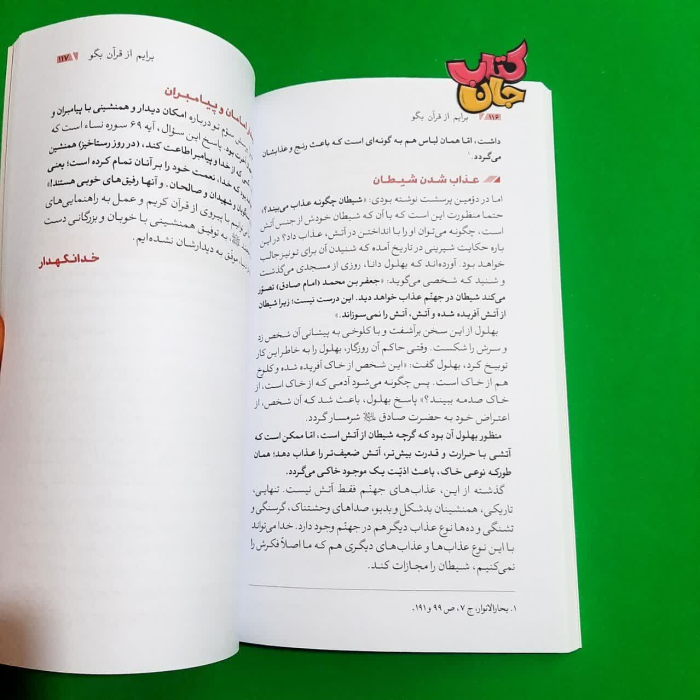 کتاب
جان
۱۱۶ برایم از قرآن بگو
داشت، امّا همان لباس هم به گونه‌ای است که باعث رنج و عذابشان
می‌گردد.۱
عذاب شدن شیطان
اما در دوّمین پرسشت نوشته بودی: «شیطان چگونه عذاب می‌بیند؟»،
حتما منظورت این است که با آن که شیطان خودش از جنس آتش
است، چگونه می‌توان او را با انداختن در آتش، عذاب داد؟ در این
باره حکایت شیرینی در تاریخ آمده که شنیدن آن برای تو نیز جالب
خواهد بود. آورده‌اند که بهلول دانا، روزی از مسجدی می‌گذشت
و شنید که شخصی می‌گوید: «جعفر بن محمد (امام صادق) تصوّر
می‌کند شیطان در جهنّم عذاب خواهد دید. این درست نیست؛ زیرا شیطان
از آتش آفریده شده و آتش، آتش را نمی‌سوزاند.»
بهلول از این سخن برآشفت و با کلوخی به پیشانی آن شخص زد
و سرش را شکست. وقتی حاکم آن روزگار، بهلول را به خاطر این کار
توبیخ کرد، بهلول گفت: «این شخص از خاک آفریده شده و کلوخ
هم از خاک است. پس چگونه می‌شود آدمی که از خاک است، از
خاک صدمه ببیند؟» پاسخ بهلول، باعث شد که آن شخص، از
اعتراض خود به حضرت صادق شرمسار گردد.
منظور بهلول آن بود که گرچه شیطان از آتش است، امّا ممکن است که
آتشی با حرارت و قدرت بیش‌تر، آتش ضعیف‌تر را عذاب دهد؛ همان
طور که نوعی خاک، باعث اذیّت یک موجود خاکی می‌گردد.
گذشته از این، عذاب‌های جهنّم فقط آتش نیست. تنهایی،
تاریکی، همنشینان بدشکل و بدبو، صداهای وحشتناک، گرسنگی و
تشنگی و ده‌ها نوع عذاب دیگر هم در جهنّم وجود دارد. خدا می‌تواند
با این نوع عذاب‌ها و عذاب‌های دیگری هم که ما اصلاً فکرش را
نمی‌کنیم، شیطان را مجازات کند.
۱. بحارالانوار، ج ۷، ص ۹۹ و ۱۹۱.
برایم از قرآن بگو ۱۱۷
امامان و پیامبران
سوم تو درباره امکان دیدار و همنشینی با پیامبران و
بود. پاسخ این سؤال، آیه ۶۹ سوره نساء است که
که از خدا و پیامبر اطاعت کند، (در روز رستاخیز) همنشین
که خدا، نعمت خود را بر آنان تمام کرده است؛ یعنی
و شهیدان و صالحان. و آنها رفیق‌های خوبی هستند!»
با پیروی از قرآن کریم و عمل به راهنمایی‌های
به توفیق همنشینی با خوبان و بزرگانی دست
موفّق به دیدارشان نشده‌ایم.
خدانگهدار